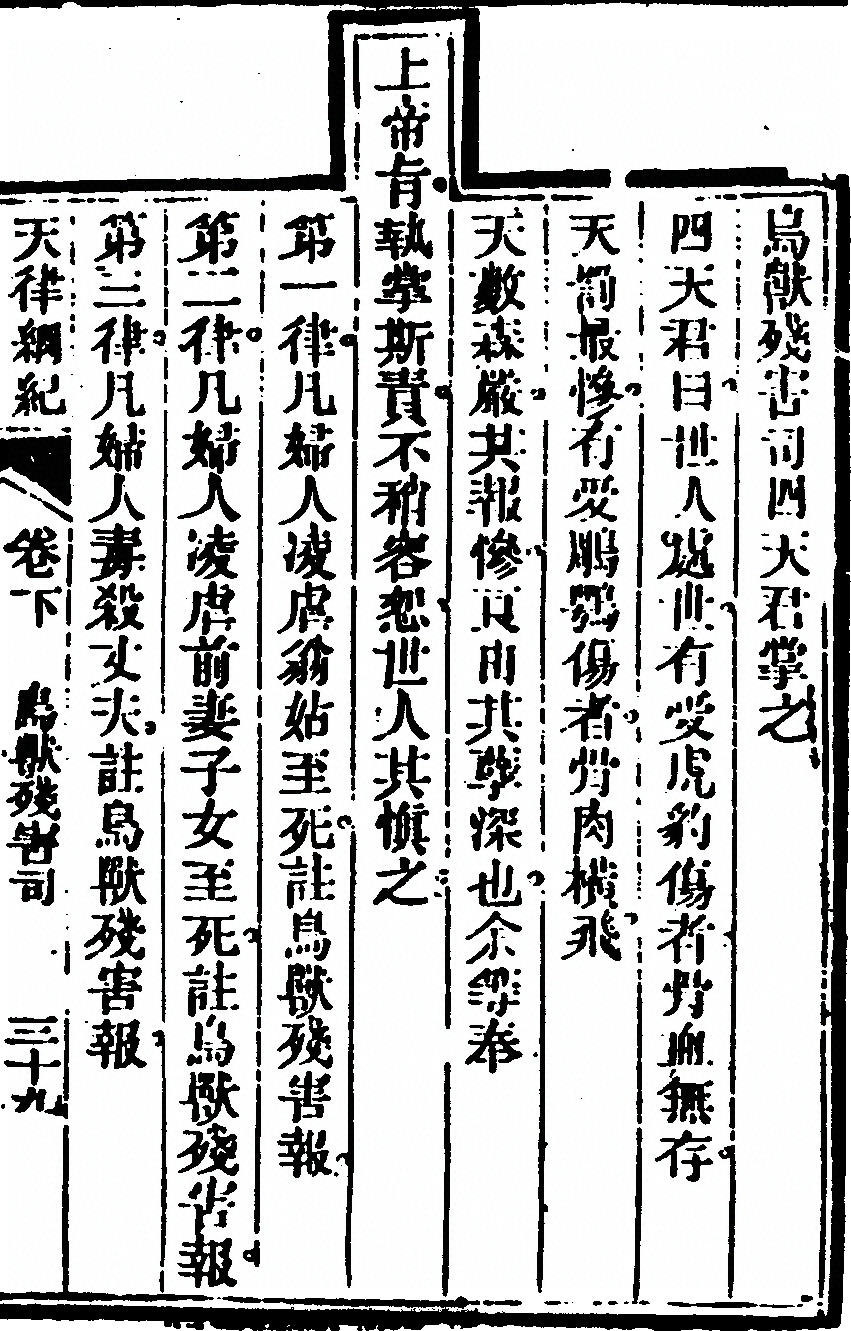 鳥獸殘害司四天君掌之
四天君曰世人處世有受虎豹傷者骨血無存
天罰最慘有受鵰鶚傷者骨肉橫飛
天數森嚴其報慘良由其孽深也余等奉
上帝旨執掌斯責不稍容恕世人其慎之
第一律凡婦人凌虐翁姑至死註鳥獸殘害報
第二律凡婦人凌虐前妻子女至死註鳥獸殘害報
第三律凡婦人毒殺丈夫註鳥獸殘害報
天律綱紀 卷下 鳥獸殘害司 三十九